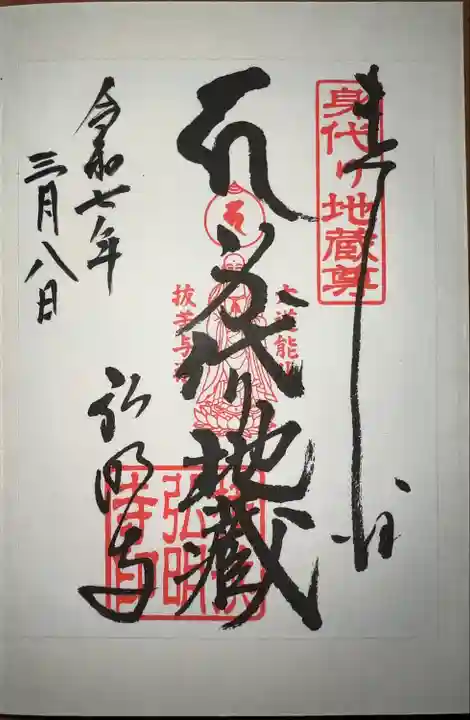 奉拝
身代り地蔵尊
身代り地蔵
大道能
抜苦与
弘明寺
弘明寺
令和七年
三月八日